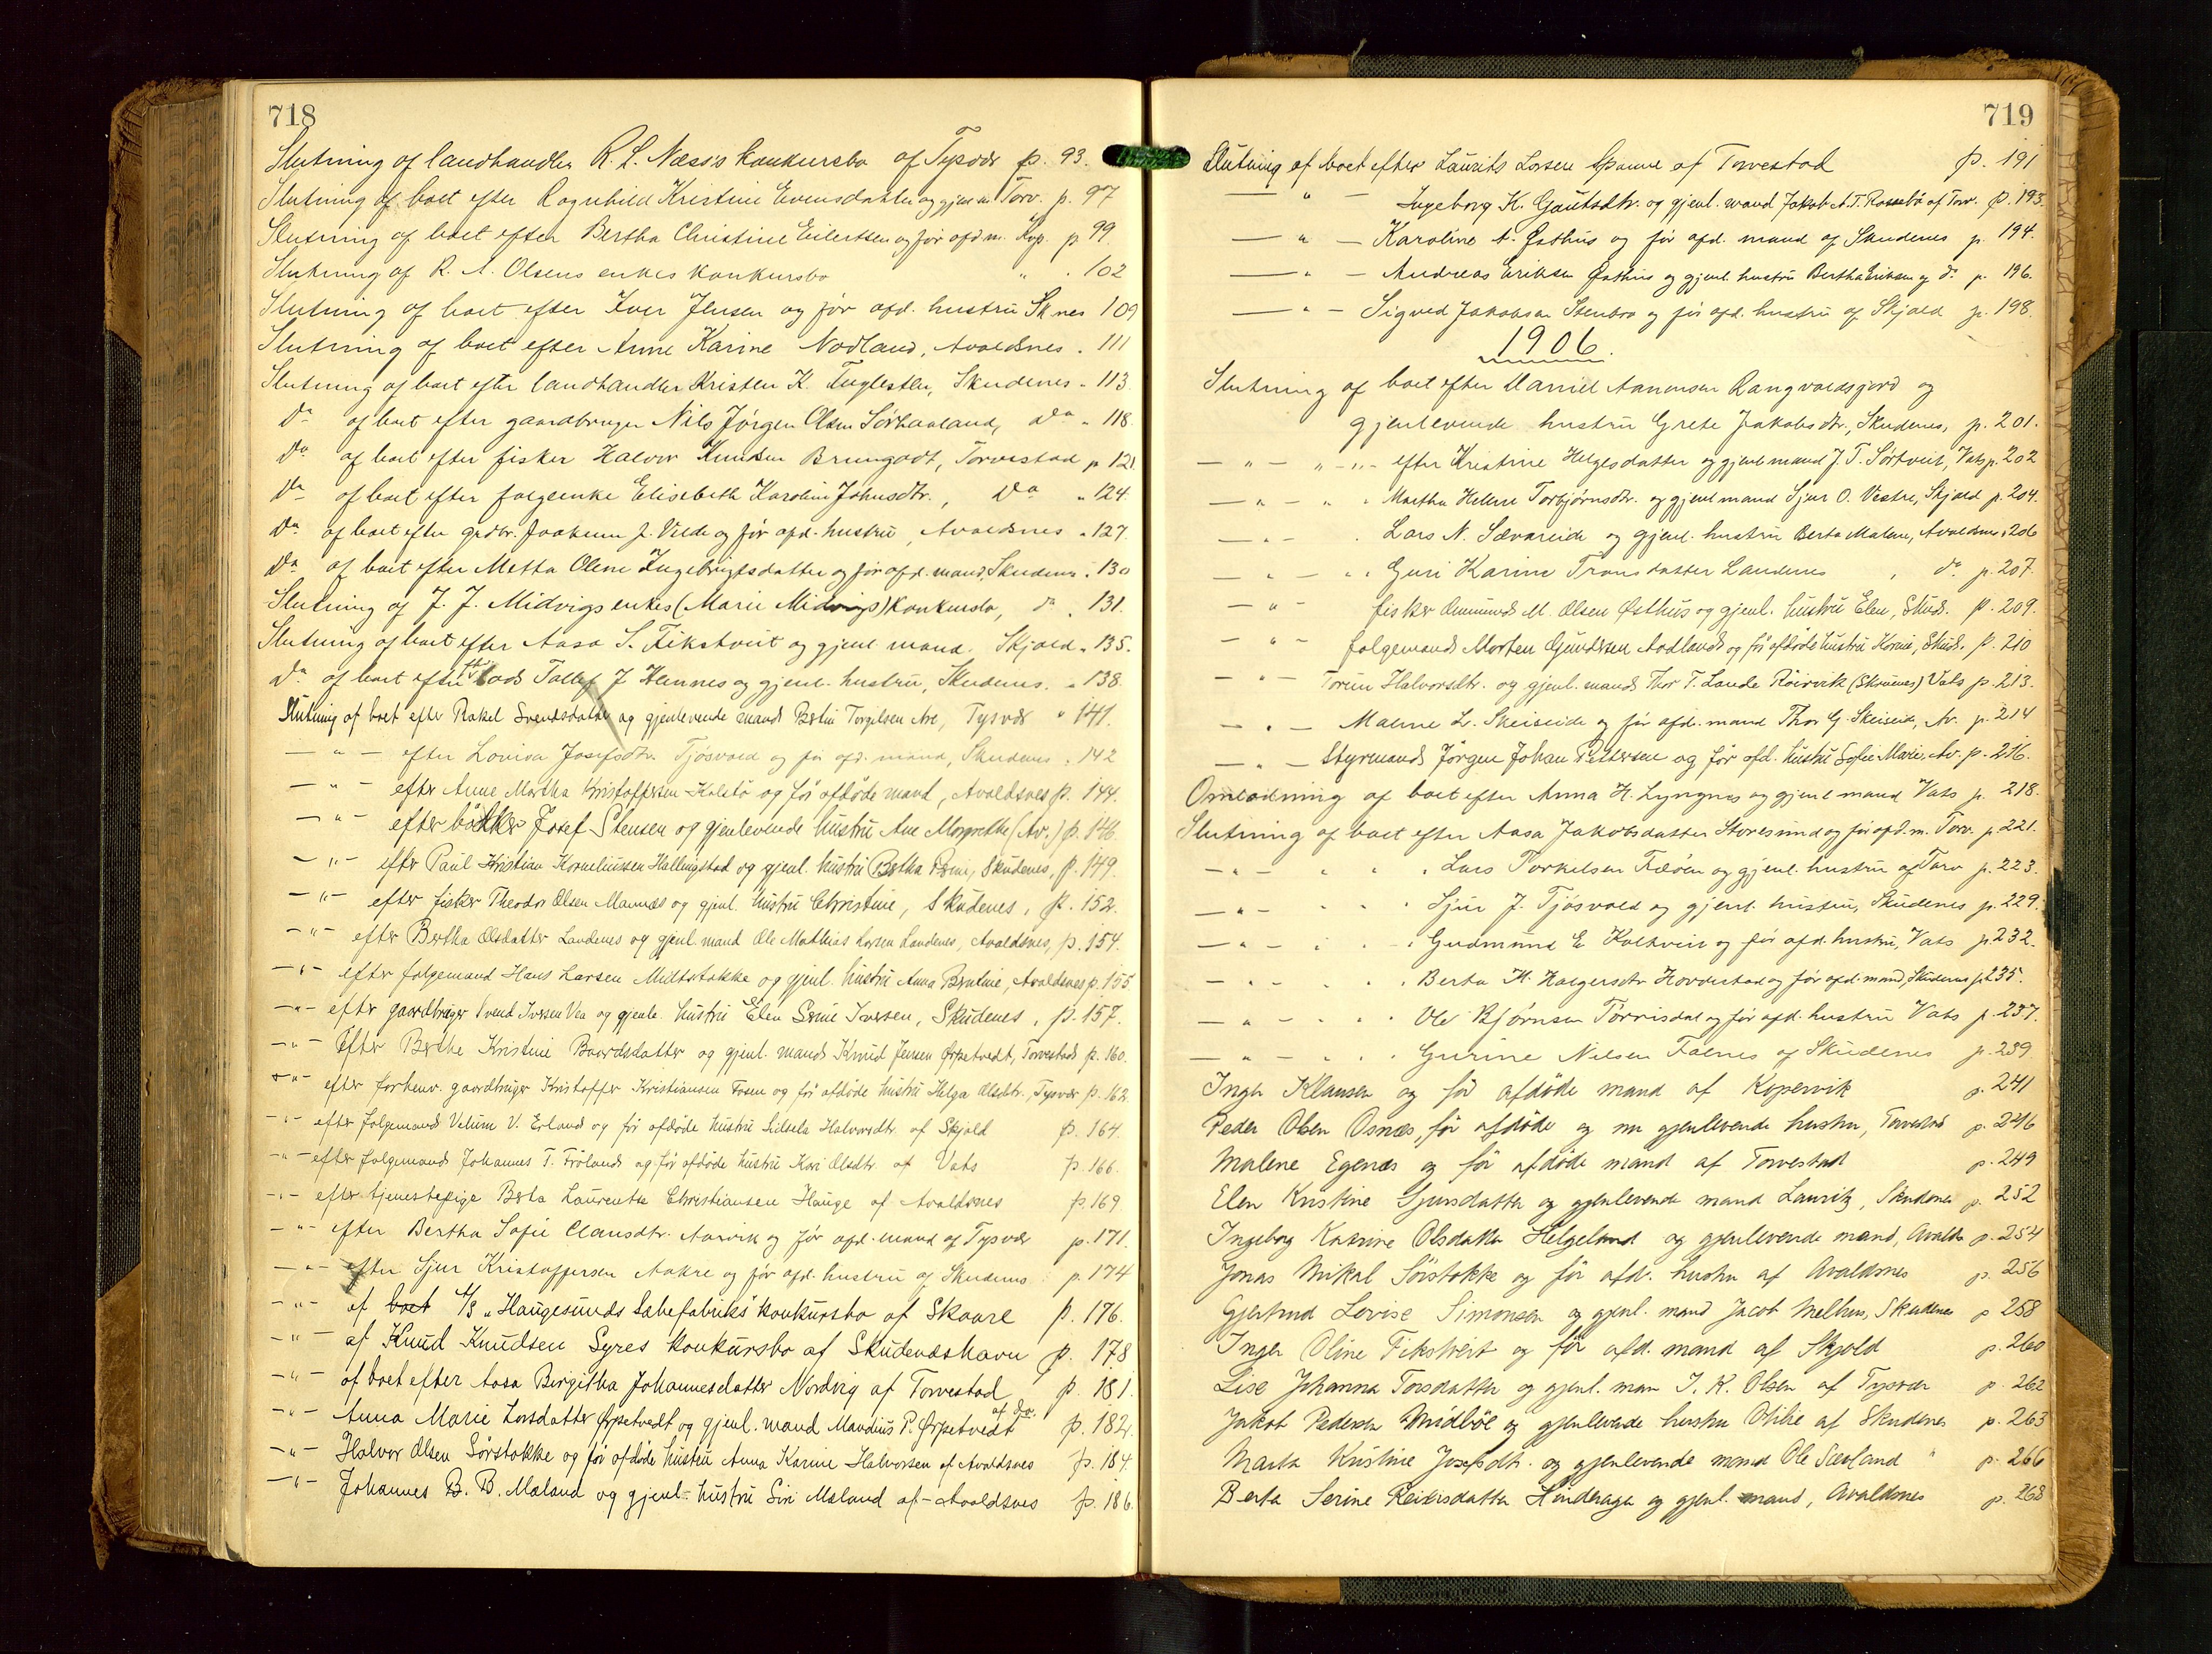 718
Slutning af landhandler R. L. Næss's konkursbo af Tysvær p. 93.
Slutning af boet efter Ragnhild Kristine Evensdatter og gjenl. m. Torv. p. 97
Slutning af boet efter Bertha Christine Eilertsen og før afd. m. Kop. p 99.
Slutning af R. A. Olsens enkes konkursbo " . 102
Slutning af boet efter Iver Jensen og før afd. hustru Sk.nes 109
Slutning af boet efter Anne Karine Nodland, Avaldsnes . 111
Slutning af boet efter landhandler Kristen K. Fuglesten, Skudenes . 113.
Do af boet efter gaardbruger Nils Jørgen Olsen Sørhaaland, Do " 118.
Do af boet efter fisker Halvor Knudsen Brungodt, Torvestad p 121.
Do af boet efter folgeenke Elisebeth Karoline Johnsdtr., Do " 124.
Do af boet efter grdbr. Joakim J. Velde og før afd. hustru, Avaldsnes " 127.
Do af boet efter Metta Olene Ingebrigtsdatter og før afd. mand, Skudenes . 130
Slutning af J. J. Midvigs enkes (Marie Midvigs) konkursbo, do . 131.
Slutning af boet efter Aasa S. Fikstveit og gjenl. mand. Skjold " 135.
Do af boet efter lods Tollef J Hemnes og gjenl. hustru, Skudenes. " 138.
Slutning af boet efter Rakel Svendsdatter og gjenlevende mand Bertin Torgilsen Are, Tysvær " 141.
— " — efter Lovisa Josefsdtr. Tjøsvold og før afd. mand, Skudenes . 142
— " — efter Anne Martha Kristoffersen Kolstø og før afdøde mand, Avaldsnes p. 144.
— " — efter bødker Josef Stensen og gjenlevende hustru Ane Margrethe (Av.) p. 146.
— " — efter Paul Kristian Korneliussen Hallingstad og gjenl. hustru Bertha Serine, Skudenes, p. 149.
— " — efter fisker Theodor Olsen Mannes og gjenl. hustru Christine, Skudenes, p. 152.
— " — efter Bertha Olsdatter Landenes og gjenl. mand Ole Mathias Larsen Landenes, Avaldsnes, p. 154.
— " — efter folgemand Hans Larsen Midtstokke og gjenl. hustru Anna Bertine, Avaldsnes p. 155
— " — efter gaardbruger Svend Iversen Vea og gjenle. hustru Elen Serine Iversen, Skudenes, p. 157.
— " — Efter Berthe Kristine Baardsdatter og gjenl. mand Knud Jensen Ørpetvedt, Torvestad p. 160.
— " — efter forhenv. gaardbruger Kristoffer Kristiansen Fosen og før afdøde hustru Helga Olsdtr., Tysvær p. 162.
— " — efter folgemand Velum V. Erland og før afdøde hustru Sidsela Halvorsdtr. af Skjold p. 164.
— " — efter folgemand Johannes T. Frøland og før afdøde hustru Kari Olsdtr. af Vats p. 166.
— " — efter tjenestepige Berta Laurentse Christiansen Hauge af Avaldsnes p. 169.
— " — efter Bertha Sofie Clausdtr. Aarvik og før afd. mand af Tysvær p. 171.
— " — efter Sjur Kristoffersen Aakre og før afd. hustru af Skudenes p. 174
— " — af boet A/S "Haugesunds Sæbefabriks" konkursbo af Skaare p. 176.
— " — af Knud Knudsen Syres konkursbo af Skudeneshavn p. 178
— " — af boet efter Aasa Bergitha Johannesdatter Nordvig af Torvestad p. 181.
— " — Anna Marie Larsdatter Ørpetvedt og gjenl. mand Mandius P. Ørpetvedt af do. p. 182.
— " — Halvor Olsen Sørstokke og før afdøde hustru Anna Karine Halvorsen af Avaldsnes p. 184.
— " — Johannes B. B. Maland og gjenl. hustru Siri Maland af Avaldsnes p. 186.
719
Slutning af boet efter Laurits Larsen Spanne af Torvestad p. 191
— " — Ingeborg K. Gautsdtr. og gjenl. mand Jakob A. T. Rossebø af Torv. p. 193.
— " — Karoline A. Østhus og før afd. mand af Skudenes p. 194.
— " — Andreas Eriksen Østhus og gjenl. hustru Bertha Eriksen af do p. 196.
— " — Sigved Jakobsen Stenbro og før afd. hustru af Skjold p. 198.
1906.
Slutning af boet efter Daniel Aanensen Rangvaldsjord og
gjenlevende hustru Grete Jakobsdtr., Skudenes, p. 201.
— " — " — " — efter Kristine Helgesdatter og gjenl mand J. T. Sørtveit, Vats p. 202
— " — " . Martha Helene Torbjørnsdtr. og gjenl mand Sjur O. Vestre, Skjold p. 204.
— " — . Lars N. Sævareide og gjenl. hustru Berta Malene, Avaldsnes . 206
— " — " . Guri Karine Tronsdatter Landenes , do p. 207.
— " — fisker Amund M. Olsen Østhus og gjenl. hustru Elen, Skud. p. 209.
— " — folgemand Morten Gundersen Aadland og før afdøde hustru Karine, Skud. p. 210
— " — Torun Halvorsdtr. og gjenl. mand Thor T. Lande Røirvik (Skrunes) Vats p. 213.
— " — Malene L. Skeiseide og før afd. mand Thor G. Skeiseid, Av. p. 214
— " — Styrmand Jørgen Johan Pettersen og før afd. hustru Sofie Marie, Av. p. 216.
Omlodning af boet efter Anna H. Lyngnes og gjenl mand Vats p. 218.
Slutning af boet efter Aasa Jakobsdatter Storesund og før afd. m. Torv. p. 221.
— " — " " . Lars Torkelsen Fæøen og gjenl. hustru af Torv p. 223.
— " — " " . Sjur J. Tjøsvold og gjenl. hustru, Skudenes p. 229.
— " — . . . Gudmund E Koltveit og før afd. hustru, Vats p. 232.
— " — . . . Berta H. Holgersdtr Hovdestad og før afd. mand, Skudenes p. 235.
— " — . . . Ole Bjørnsen Tørrisdal og før afd. hustru Vats p. 237.
— " — . . . Gurine Nilsen Falnes af Skudenes p. 239.
Inger Klausen og før afdøde mand af Kopervik p. 241
Peder Olsen Osnes, før afdøde og nu gjenlevende hustru, Torvestad p. 246
Malene Egenæs og før afdøde mand af Torvestad p. 249
Elen Kristine Sjursdatter og gjenlevende mand Lauritz, Skudenes p. 252
Ingeborg Katrine Olsdatter Helgeland og gjenlevende mand, Avalds p. 254
Jonas Mikal Sørstokke og før afd. hustru af Avaldsnes p. 256
Gjertrud Lovise Simonsen og gjenl. mand Jacob Melhus, Skudenes p 258
Inger Oline Fikstveit og før afd. mand af Skjold p. 260
Lise Johanna Torsdatter og gjenl. man J. K. Olsen af Tysvær p. 262
Jakob Pedersen Midbøe og gjenlevende hustru Otilie af Skudenes p. 263
Marta Kristine Josefsdtr. og gjenlevende mand Ole Sævland " p. 266
Berta Serine Reiersdatter Hinderager og gjenl. mand, Avaldsnes p. 268